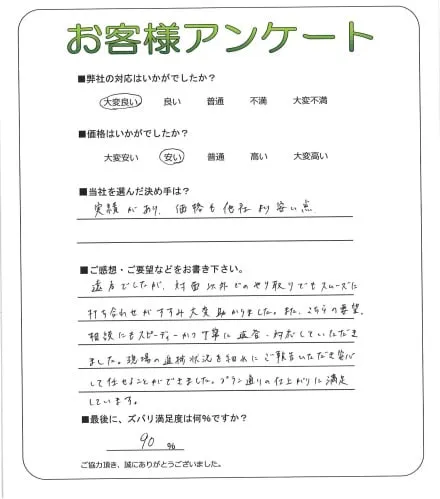 お客様アンケート
■弊社の対応はいかがでしたか？
大変良い 良い 普通 不満 大変不満
■価格はいかがでしたか？
大変安い 安い 普通 高い 大変高い
■当社を選んだ決め手は？
実績があり、価格も他社より安い点
■ご感想・ご要望などをお書き下さい。
遠方でしたが、対面以外でのやり取りでもスムーズに
打ち合わせがすすみ大変助かりました。また、こちらの要望、
相談にもスピーディーかつ丁寧に返答・対応していただき
ました。現場の進捗状況を細かにご報告いただき安心
して任せることができました。プラン通りの仕上がりに満足
しています。
■最後に、ズバリ満足度は何％ですか？
90 ％
ご協力頂き、誠にありがとうございました。